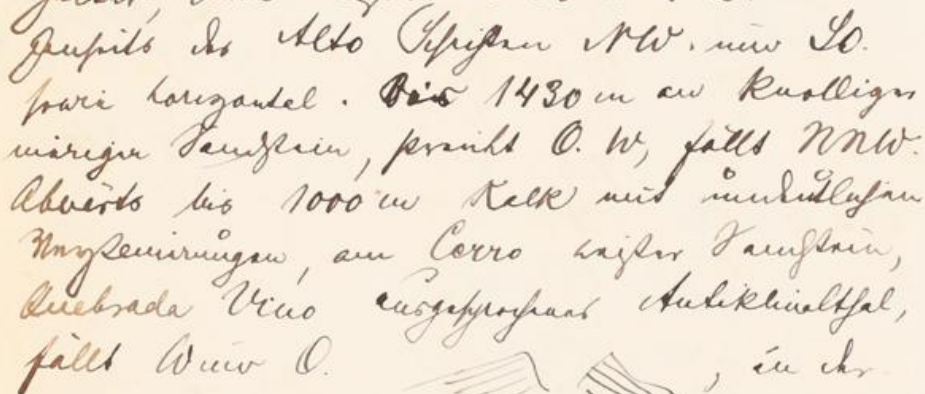 Jenseits des Alto Schichten NW. und SO.
sowie horizontal. Bis 1430 m an knolliger
mürziger Sandstein, streicht O. W, fällt NNW.
Abwärts bis 1000 m Kalk mit undeutlichen
Versteinerungen, am Cerro weißer Sandstein,
Quebrada Vino ausgesprochenes Antiklinalthal,
fällt W und O. , in der